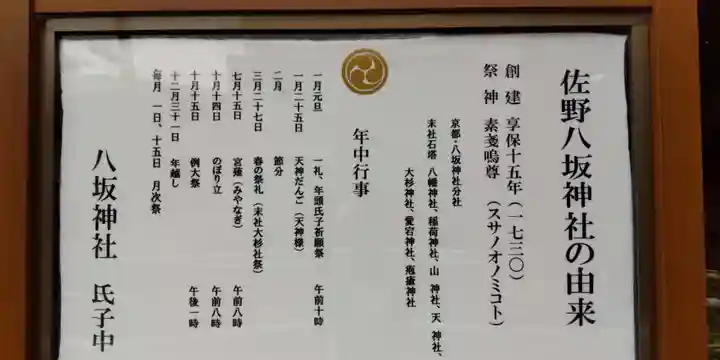 佐野八坂神社の由来
創建 享保十五年(一七三〇)
祭神 素戔嗚尊 (スサノオノミコト)
京都・八坂神社分社
末社石塔 八幡神社、稲荷神社、山 神社、天 神社、
大杉神社、愛宕神社、疱瘡神社
年中行事
一月元旦 一礼、年頭氏子祈願祭 午前十時
一月二十五日 天神だんご(天神様)
二月 節分
三月二十七日 春の祭礼(末社大杉社祭)
七月十五日 宮薙(みやなぎ) 午前八時
十月十四日 のぼり立 午前八時
十月十五日 例大祭 午後一時
十二月三十一日 年越し
毎月 一日、十五日 月次祭
八坂神社 氏子中